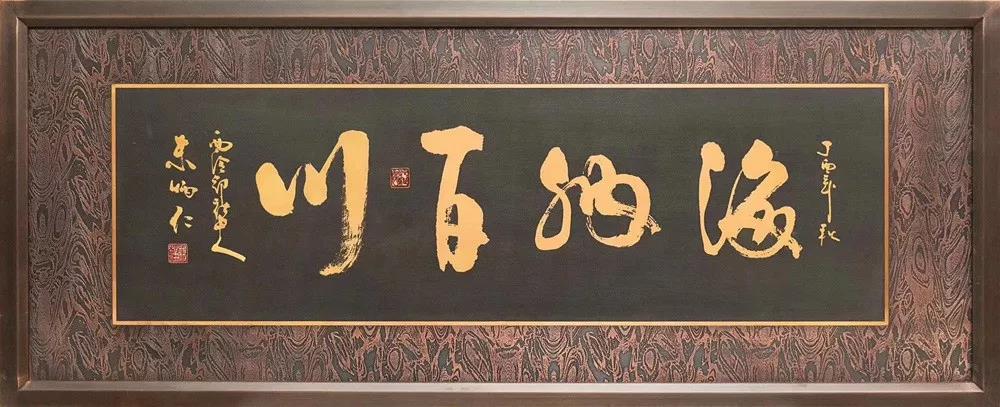 丁酉年秋
海納百川
西泠印社中人
朱炳仁